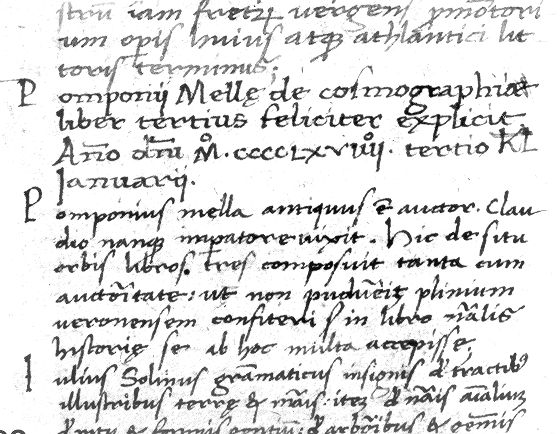 strũ iam fretũ vergens ꝓmõtori
um opis huius atqꝫ athlantici lit
toris terminus;
Pomponij Mellę de cosmographia
liber tertius feliciter explicit
Año dñi M̊.CCCCLXVIIIJ. tertio KL
Ianuarij.
Pomponius mella antiquus & auctor. Clau
dio nanqꝫ impatore uixit. Hic de situ
orbis libros. tres composuit tanta cum
auctõitate: ut non puduerit plinium
veronensem confiteri in libro nãlis
historię se ab hoc multa accepisse
Iulius Solinus gramaticus insignis de tractibꝰ
illustribus terrę & mãis: itẽ de nãis aĩalium
& formis gentium: de arbõribus & gemĩs